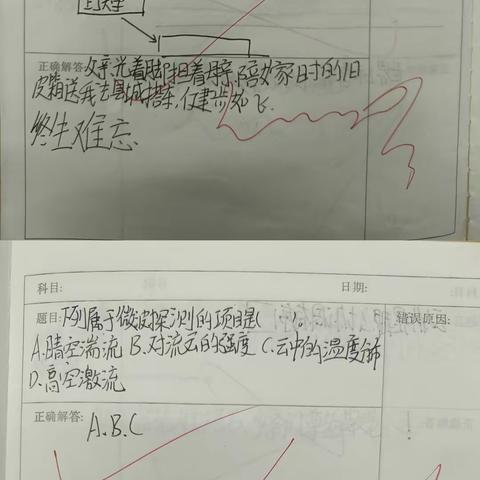 正确解答:父亲光着脚担着母亲陪嫁家时的旧
皮箱送我去县城搭车,仅建步如飞.
终生难忘.
科目: 日期:
题目:下列属于微波探测的项目是( )。 错误原因:
A.晴空湍流 B.对流云的强度 C.云中的温度
D.高空激流
正确解答: A.B.C